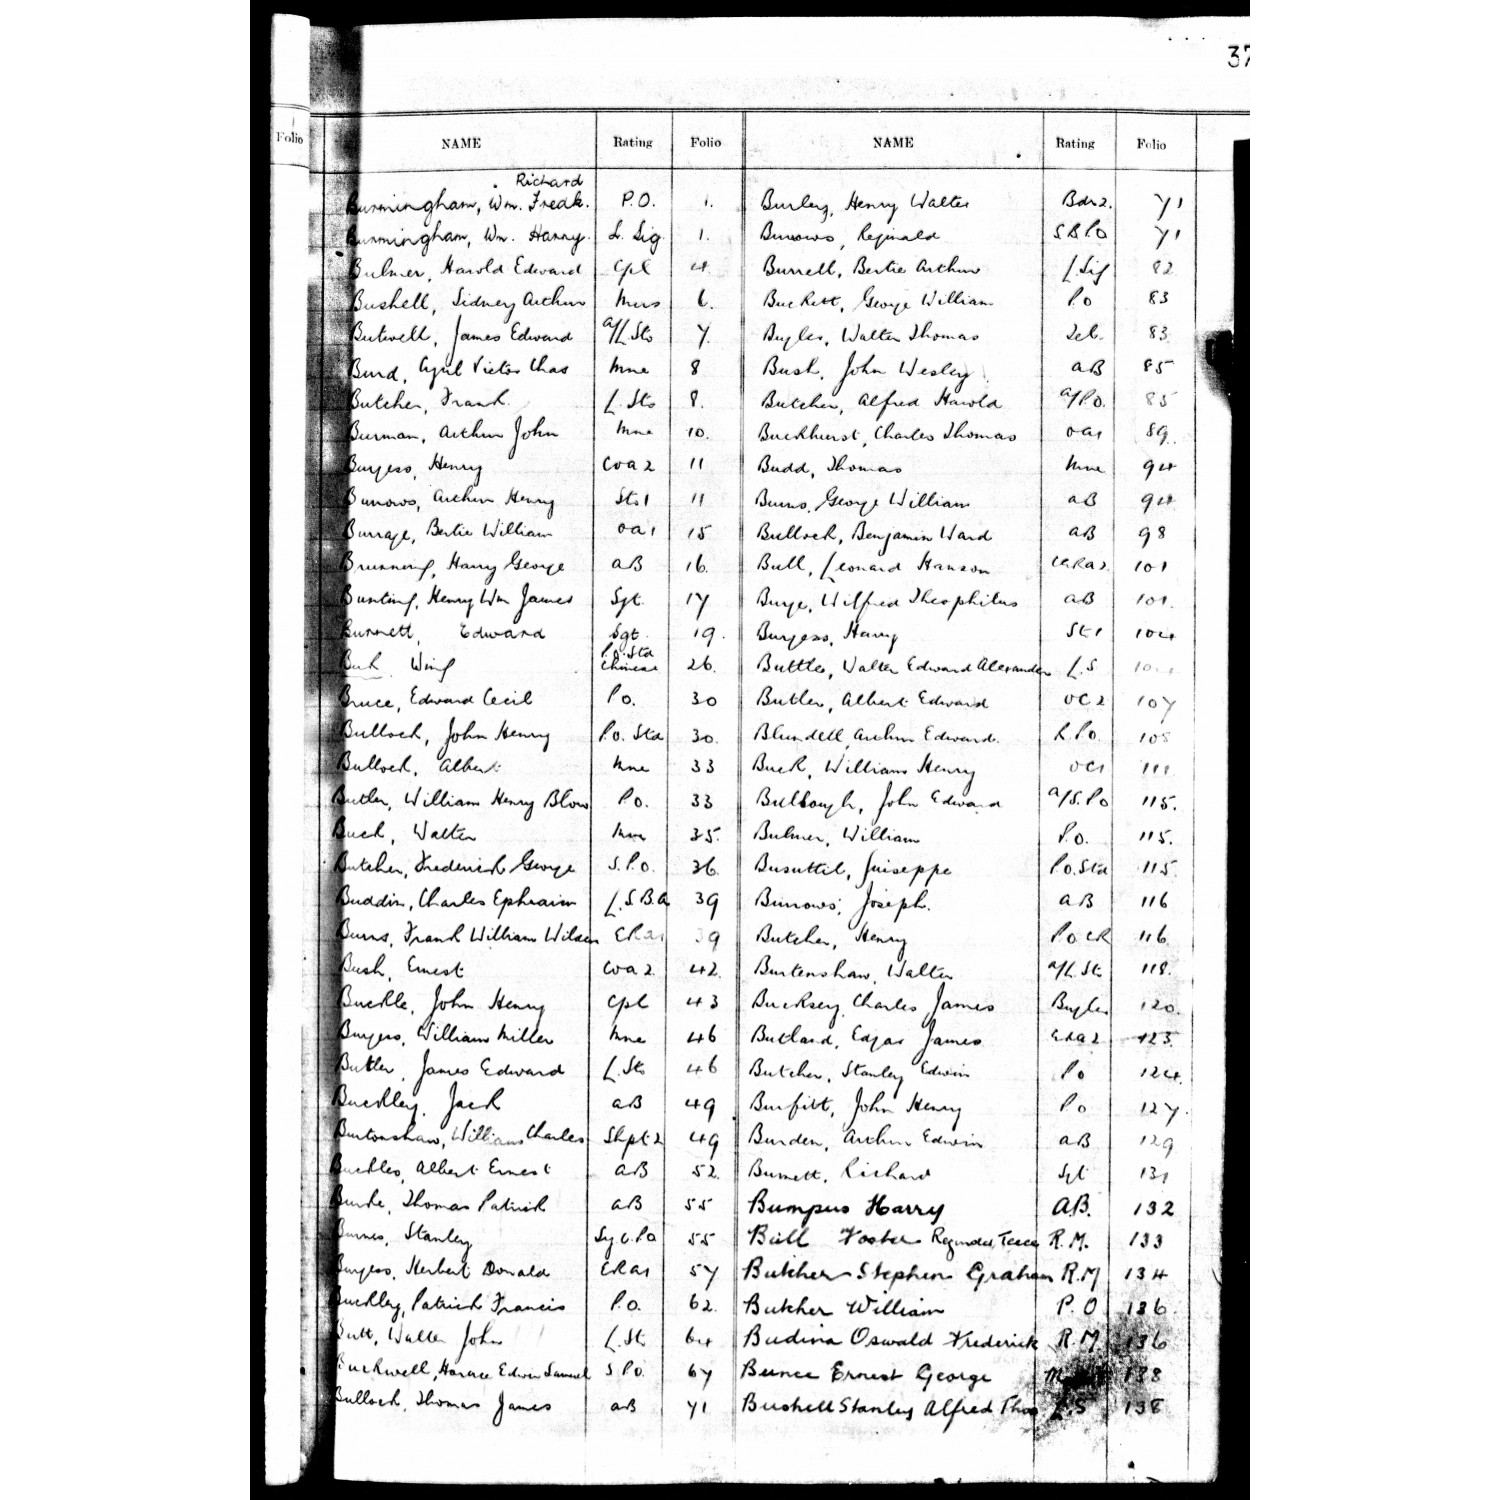 37
Folio NAME Rating Folio NAME Rating Folio
Richard
Burmingham, Wm. Fredk. P.O. 1. Burley, Henry Walter Bdr 2. 71
Burmingham, Wm. Harry. L. Sig. 1. Burrows, Reginald S B P.O 71
Bulmer, Harold Edward Cpl 4. Burrell, Bertie Arthur L Sig 82
Bushell, Sidney Arthur Mus 6. Buckett, George William P.O 83
Butwell, James Edward a/L. Sto 7. Byles, Walter Thomas Tel. 83
Burd, Cyril Victor Chas Mne 8 Bush, John Wesley AB 85
Butcher, Frank. L. Sto 8. Butcher, Alfred Harold a/P.O. 85
Burman, Arthur John Mne 10. Buckhurst, Charles Thomas OA1 89.
Burgess, Henry COA 2 11 Budd, Thomas Mne 94
Burrows, Arthur Henry Sto 1 11 Burns, George William AB 94
Burrage, Bertie William OA1 15 Bullock, Benjamin Ward AB 98
Brunning, Harry George AB 16. Bull, Leonard Hanson 101
Bunting, Henry Wm James Sgt. 17 Burge, Wilfred Theophilus AB 101.
Burnett, Edward Sgt. 19. Burgess, Harry St 1 104
Buk Wing P.O. Std Chinese 26. Buttle, Walter Edward Alexander L.S
Bruce, Edward Cecil P.O. 30 Butler, Albert Edward OC 2 107
Bullock, John Henry P.O. Std 30. Blundell, Arthur Edward. R.P.O. 108
Bullock, Albert Mne 33 Buck, William Henry OC1 111
Butler, William Henry Blow P.O. 33 Bullough, John Edward a/S.P.O 115.
Buck, Walter Mne 35. Bulmer, William P.O. 115.
Butcher, Frederick George S.P.O. 36. Busuttil, Juiseppe P.O. Std 115.
Buddin, Charles Ephraim L.S.B.A 39 Burrows, Joseph. AB 116
Burns, Frank William Wilson 39 Butcher, Henry P.O CR 116
Bush, Ernest COA 2. 42. Burtenshaw, Walter a/L. Sto 118.
Buckle, John Henry Cpl 43 Bucksey, Charles James Bugler 120.
Burgess, William Miller Mne 46 Butland, Edgar James ERA 2 123.
Butler, James Edward L. Sto 46 Butcher, Stanley Edwin P.O 124.
Buckley, Jack AB 49 Burfitt, John Henry P.O 127.
Burtonshaw, William Charles Shpt 2 49 Burden, Arthur Edwin AB 129
Buckles, Albert Ernest AB 52. Burnett, Richard Sgt 131
Burke, Thomas Patrick AB 55 Bumpus Harry A.B. 132
Burnes, Stanley Sy C. P.O 55 Bull Foster Reginald R.M. 133
Burgess, Herbert Donald ERA1 57 Butcher Stephen Graham R.M 134
Buckley, Patrick Francis P.O. 62. Butcher William P.O 136.
Butt, Walter John L. Sto 64 Budina Oswald Frederick R.M 136
Buckwell, Horace Edwin Samuel S P.O. 67 Bunce Ernest George 138
Bullock, Thomas James AB 71 Bushell Stanley Alfred Thos L.S 138